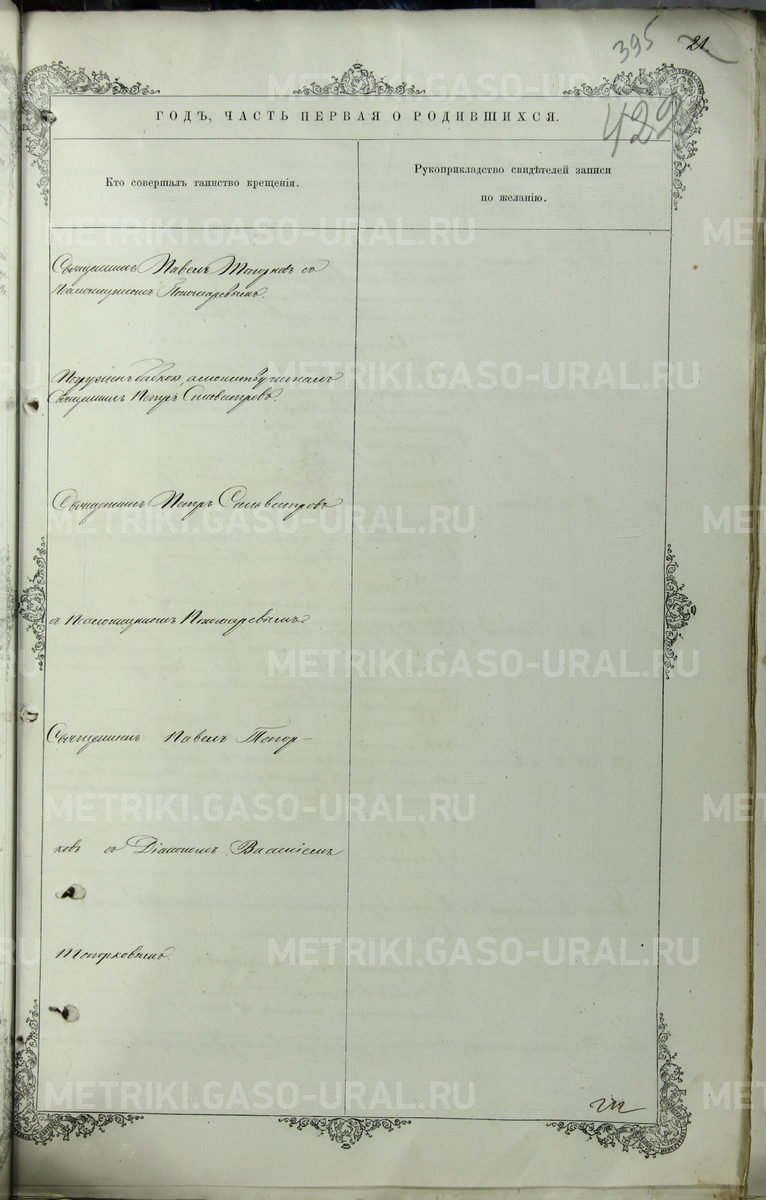 395 21.
422
ГОДЪ, ЧАСТЬ ПЕРВАЯ О РОДИВШИХСЯ.
Кто совершалъ таинство крещенія.
Рукоприкладство свидѣтелей записи
по желанію.
Священникъ Павелъ Топорковъ съ
Псаломщикомъ Пономаревымъ.
Погруженъ бабкою, а молитву читалъ
Священникъ Петръ Сильвестровъ.
Священникъ Петръ Сильвестровъ
съ Псаломщикомъ Пономаревымъ
Священникъ Павелъ Топор-
ковъ съ Діакономъ Василіемъ
Топорковымъ.
METRIKI.GASO-URAL.RU